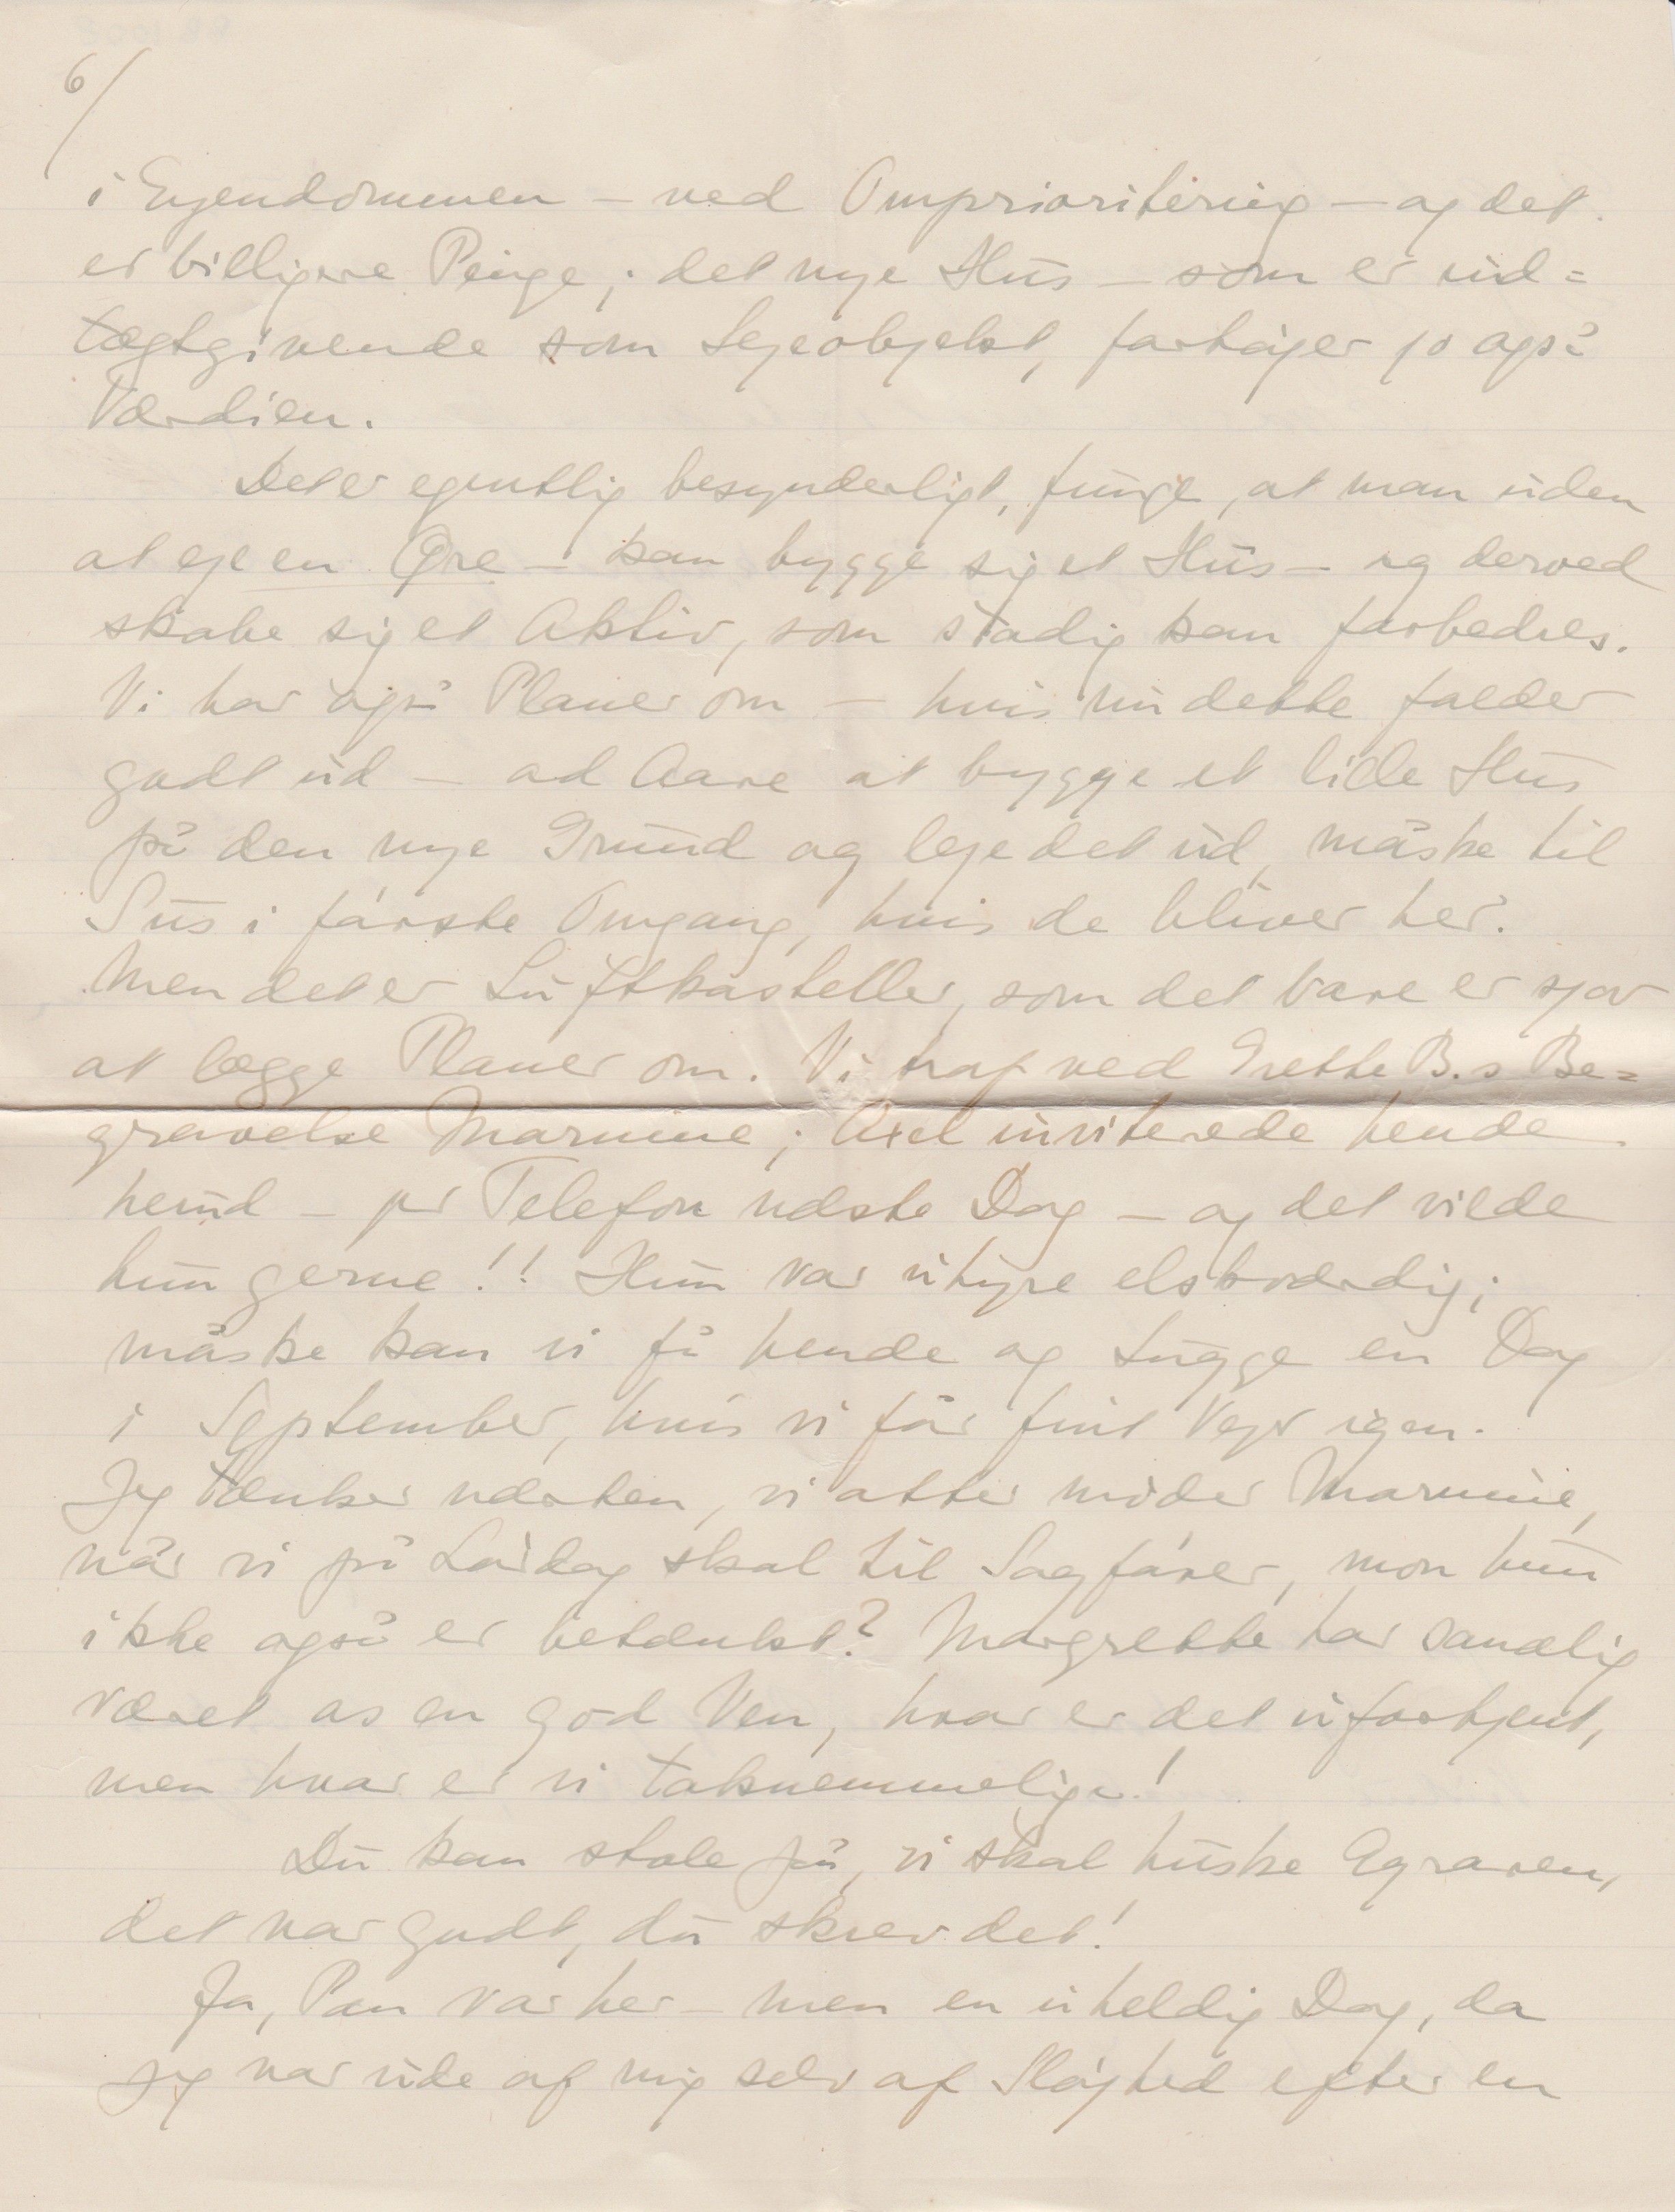 6/
i Ejendommen – ved Omprioritering – og det
er billigere Penge; det nye Hus – som er ind=
tægtgivende som Lejeobjekt, forhøjer jo også
Værdien.
Det er egentlig besynderligt, Junge, at man uden
at eje en Øre – kan bygge sig et Hus – og derved
skabe sig et Aktiv, som stadig kan forbedres.
Vi har også Planer om – hvis nu dette falder
godt ud – ad Aare at bygge et lille Hus
på den nye Grund og leje det ud, måske til
Sus i første Omgang, hvis de bliver her.
Men det er Luftkasteller, som det bare er sjov
at lægge Planer om. Vi traf ved Grethe B.s Be=
gravelse Marnine; Axel inviterede hende
herud – pr Telefon næste Dag – og det vilde
hun gerne!! Hun var uhyre elskværdig;
måske kan vi få hende og Lugge en Dag
i September, hvis vi får fint Vejr igen.
Jeg tænker næsten, vi atter møder Marnine,
når vi på Lørdag skal til Sagfører, mon hun
ikke også er betænkt? Margrethe har sandelig
været os en god Ven, hvor er det ufortjent,
men hvor er vi taknemmelige!
Du kan stole på, vi skal huske Agraren,
det var godt, du skrev det!
Ja, Pan var her – men en uheldig Dag, da
jeg var ude af mig selv af Sløjhed efter en